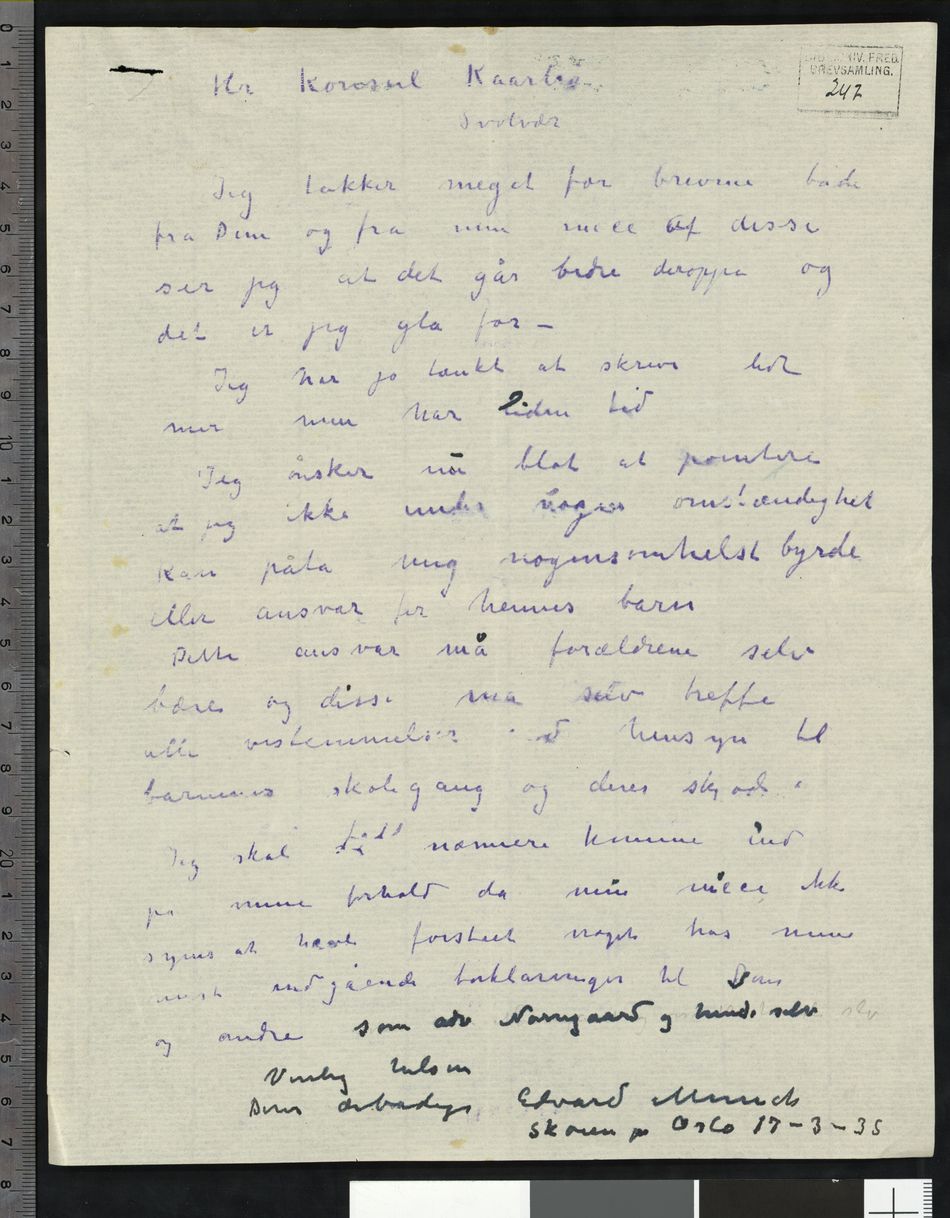 Hr Konsul Kaarbø
Svolvær
UNIV. FRED.
BREVSAMLING.
247
Jeg takker meget for brevene både
fra Dem og fra min niece Af disse
ser jeg at det går bedre deroppe og
det er jeg gla for –
Jeg har jo tænkt at skrive lidt
mer men har liden tid
Jeg ønsker nu blot at pointere
at jeg ikke under nogen omstændighet
kan påta mig nogensomhelst byrde
eller ansvar for hennes barn
Dette ansvar må forældrene selv
bære og disse må selv træffe
alle bestemmelser hensyn til
barnenes skolegang og deres
Jeg skal nærmere komme ind
på mine forhold da min niece ikke
synes at have forstået noget hos mine
mest indgående forklaringer til Dem
og andre som adv Nørregaard og hende selv
Venlig hilsen
Deres ærbødige Edvard Munch
Skøien pr Oslo 17-3-35